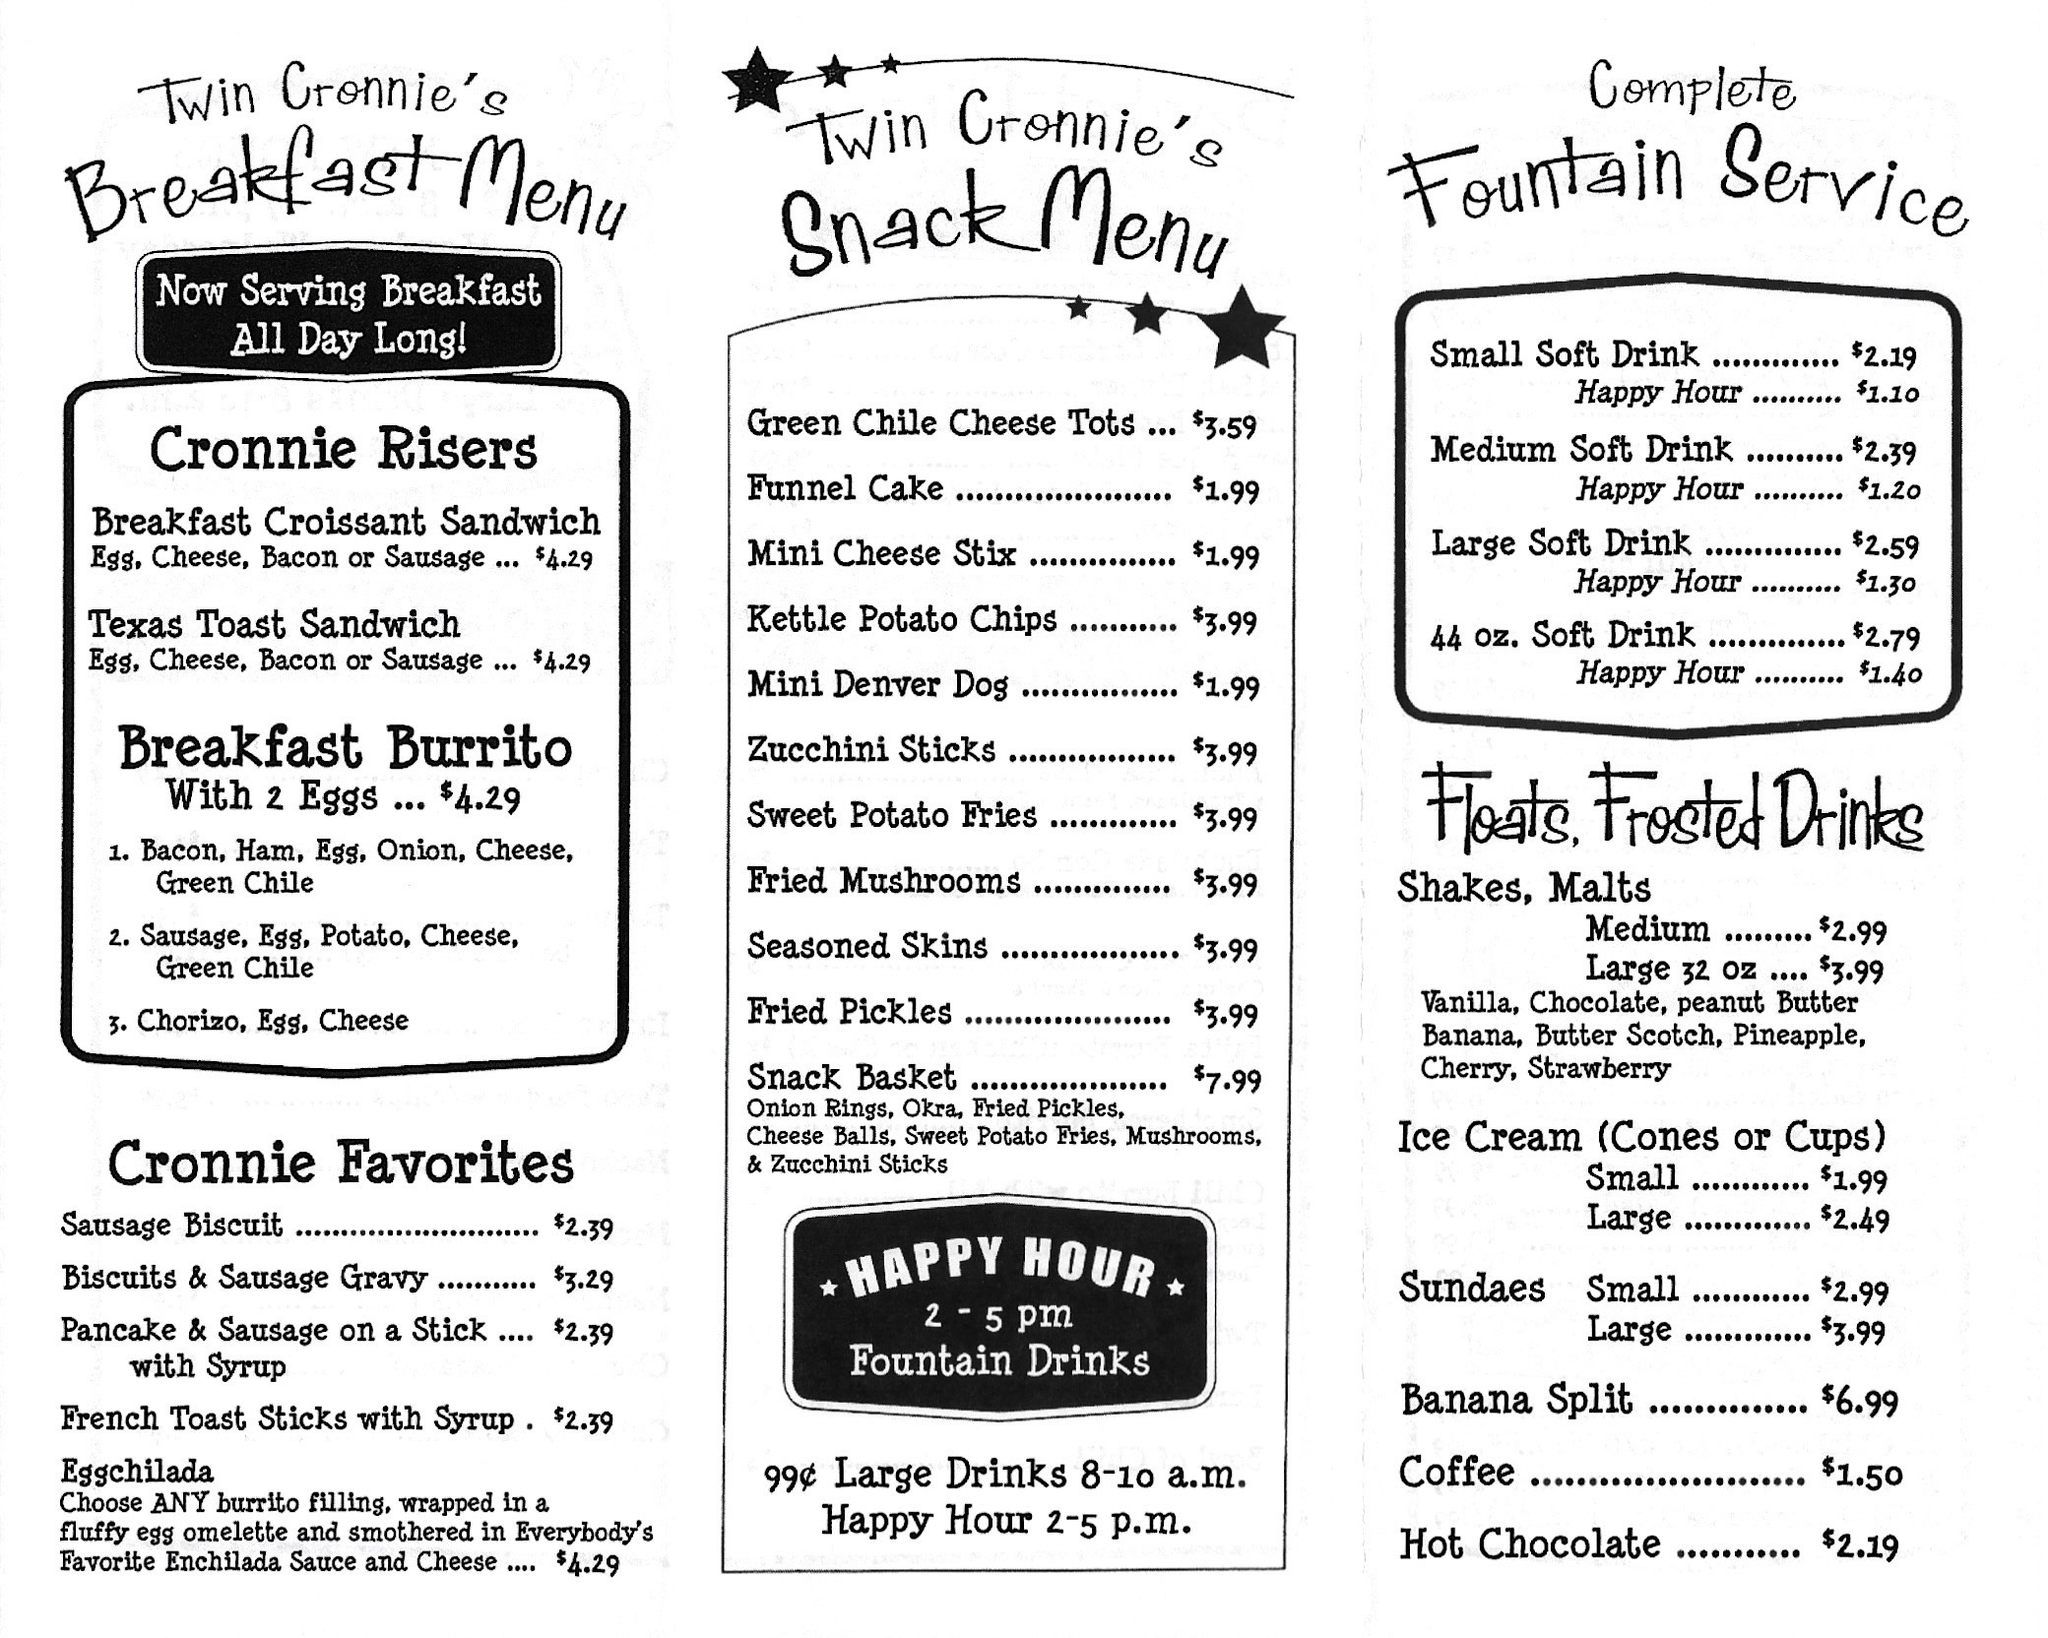 Twin Cronnie's
Breakfast Menu
Now Serving Breakfast
All Day Long!
Cronnie Risers
Breakfast Croissant Sandwich
Egg, Cheese, Bacon or Sausage ... $4.29
Texas Toast Sandwich
Egg, Cheese, Bacon or Sausage ... $4.29
Breakfast Burrito
With 2 Eggs ... $4.29
1. Bacon, Ham, Egg, Onion, Cheese,
Green Chile
2. Sausage, Egg, Potato, Cheese,
Green Chile
3. Chorizo, Egg, Cheese
Cronnie Favorites
Sausage Biscuit ........................... $2.39
Biscuits & Sausage Gravy ........... $3.29
Pancake & Sausage on a Stick .... $2.39
with Syrup
French Toast Sticks with Syrup . $2.39
Eggchilada
Choose ANY burrito filling, wrapped in a
fluffy egg omelette and smothered in Everybody's
Favorite Enchilada Sauce and Cheese .... $4.29
Twin Cronnie's
Snack Menu
Green Chile Cheese Tots ... $3.59
Funnel Cake ...................... $1.99
Mini Cheese Stix ............... $1.99
Kettle Potato Chips ........... $3.99
Mini Denver Dog ................ $1.99
Zucchini Sticks ................. $3.99
Sweet Potato Fries ............. $3.99
Fried Mushrooms .............. $3.99
Seasoned Skins .................. $3.99
Fried Pickles ..................... $3.99
Snack Basket .................... $7.99
Onion Rings, Okra, Fried Pickles,
Cheese Balls, Sweet Potato Fries, Mushrooms,
& Zucchini Sticks
HAPPY HOUR
2 - 5 pm
Fountain Drinks
99¢ Large Drinks 8-10 a.m.
Happy Hour 2-5 p.m.
Complete
Fountain Service
Small Soft Drink ............. $2.19
Happy Hour .......... $1.10
Medium Soft Drink .......... $2.39
Happy Hour .......... $1.20
Large Soft Drink .............. $2.59
Happy Hour .......... $1.30
44 oz. Soft Drink .............. $2.79
Happy Hour .......... $1.40
Floats, Frosted Drinks
Shakes, Malts
Medium ......... $2.99
Large 32 oz .... $3.99
Vanilla, Chocolate, peanut Butter
Banana, Butter Scotch, Pineapple,
Cherry, Strawberry
Ice Cream (Cones or Cups)
Small ............ $1.99
Large ............. $2.49
Sundaes Small ............ $2.99
Large ............. $3.99
Banana Split .............. $6.99
Coffee ........................ $1.50
Hot Chocolate ........... $2.19